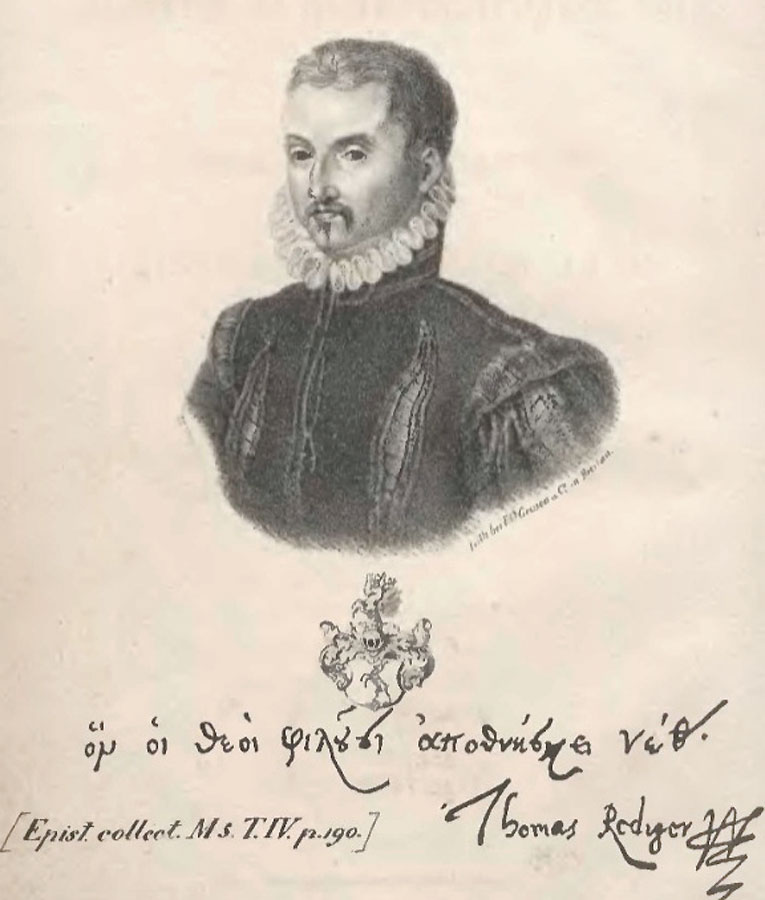 Lith. bei Ed. Gerson & Co. in Breslau.
ὅν ὁι θεὸι φιλοῦσι ἀποθνήσκει νέος.
[Epist. collect. Ms. T. IV. p. 190.]
Thomas Rediger